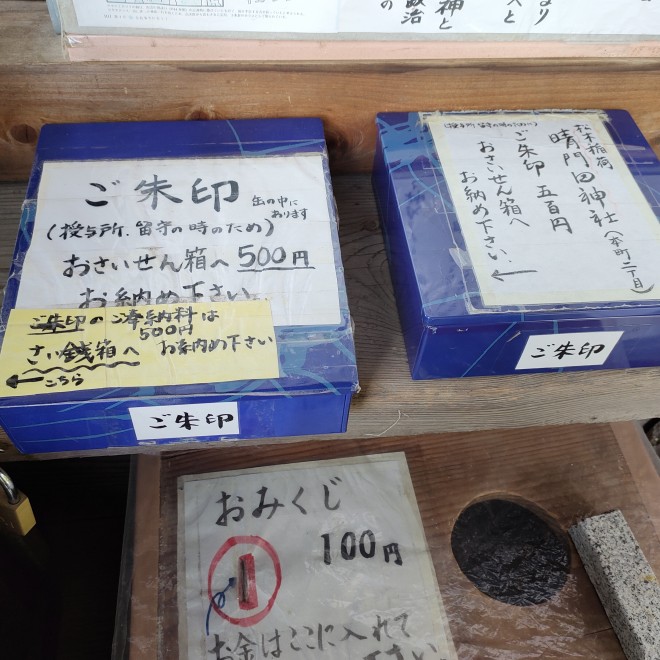 より
人と
神と
政治
の
ご朱印
缶の中に
あります
(授与所.留守の時のため)
おさいせん箱へ500円
お納め下さい。
ご朱印のご奉納料は
500円
さい銭箱へ お納め下さい
←こちら
ご朱印
松本稲荷
晴門田神社(本町二丁目)
ご朱印 五百円
おさいせん箱へ
お納め下さい。
←
ご朱印
おみくじ
100円
1
お金はここに入れて
下さい。